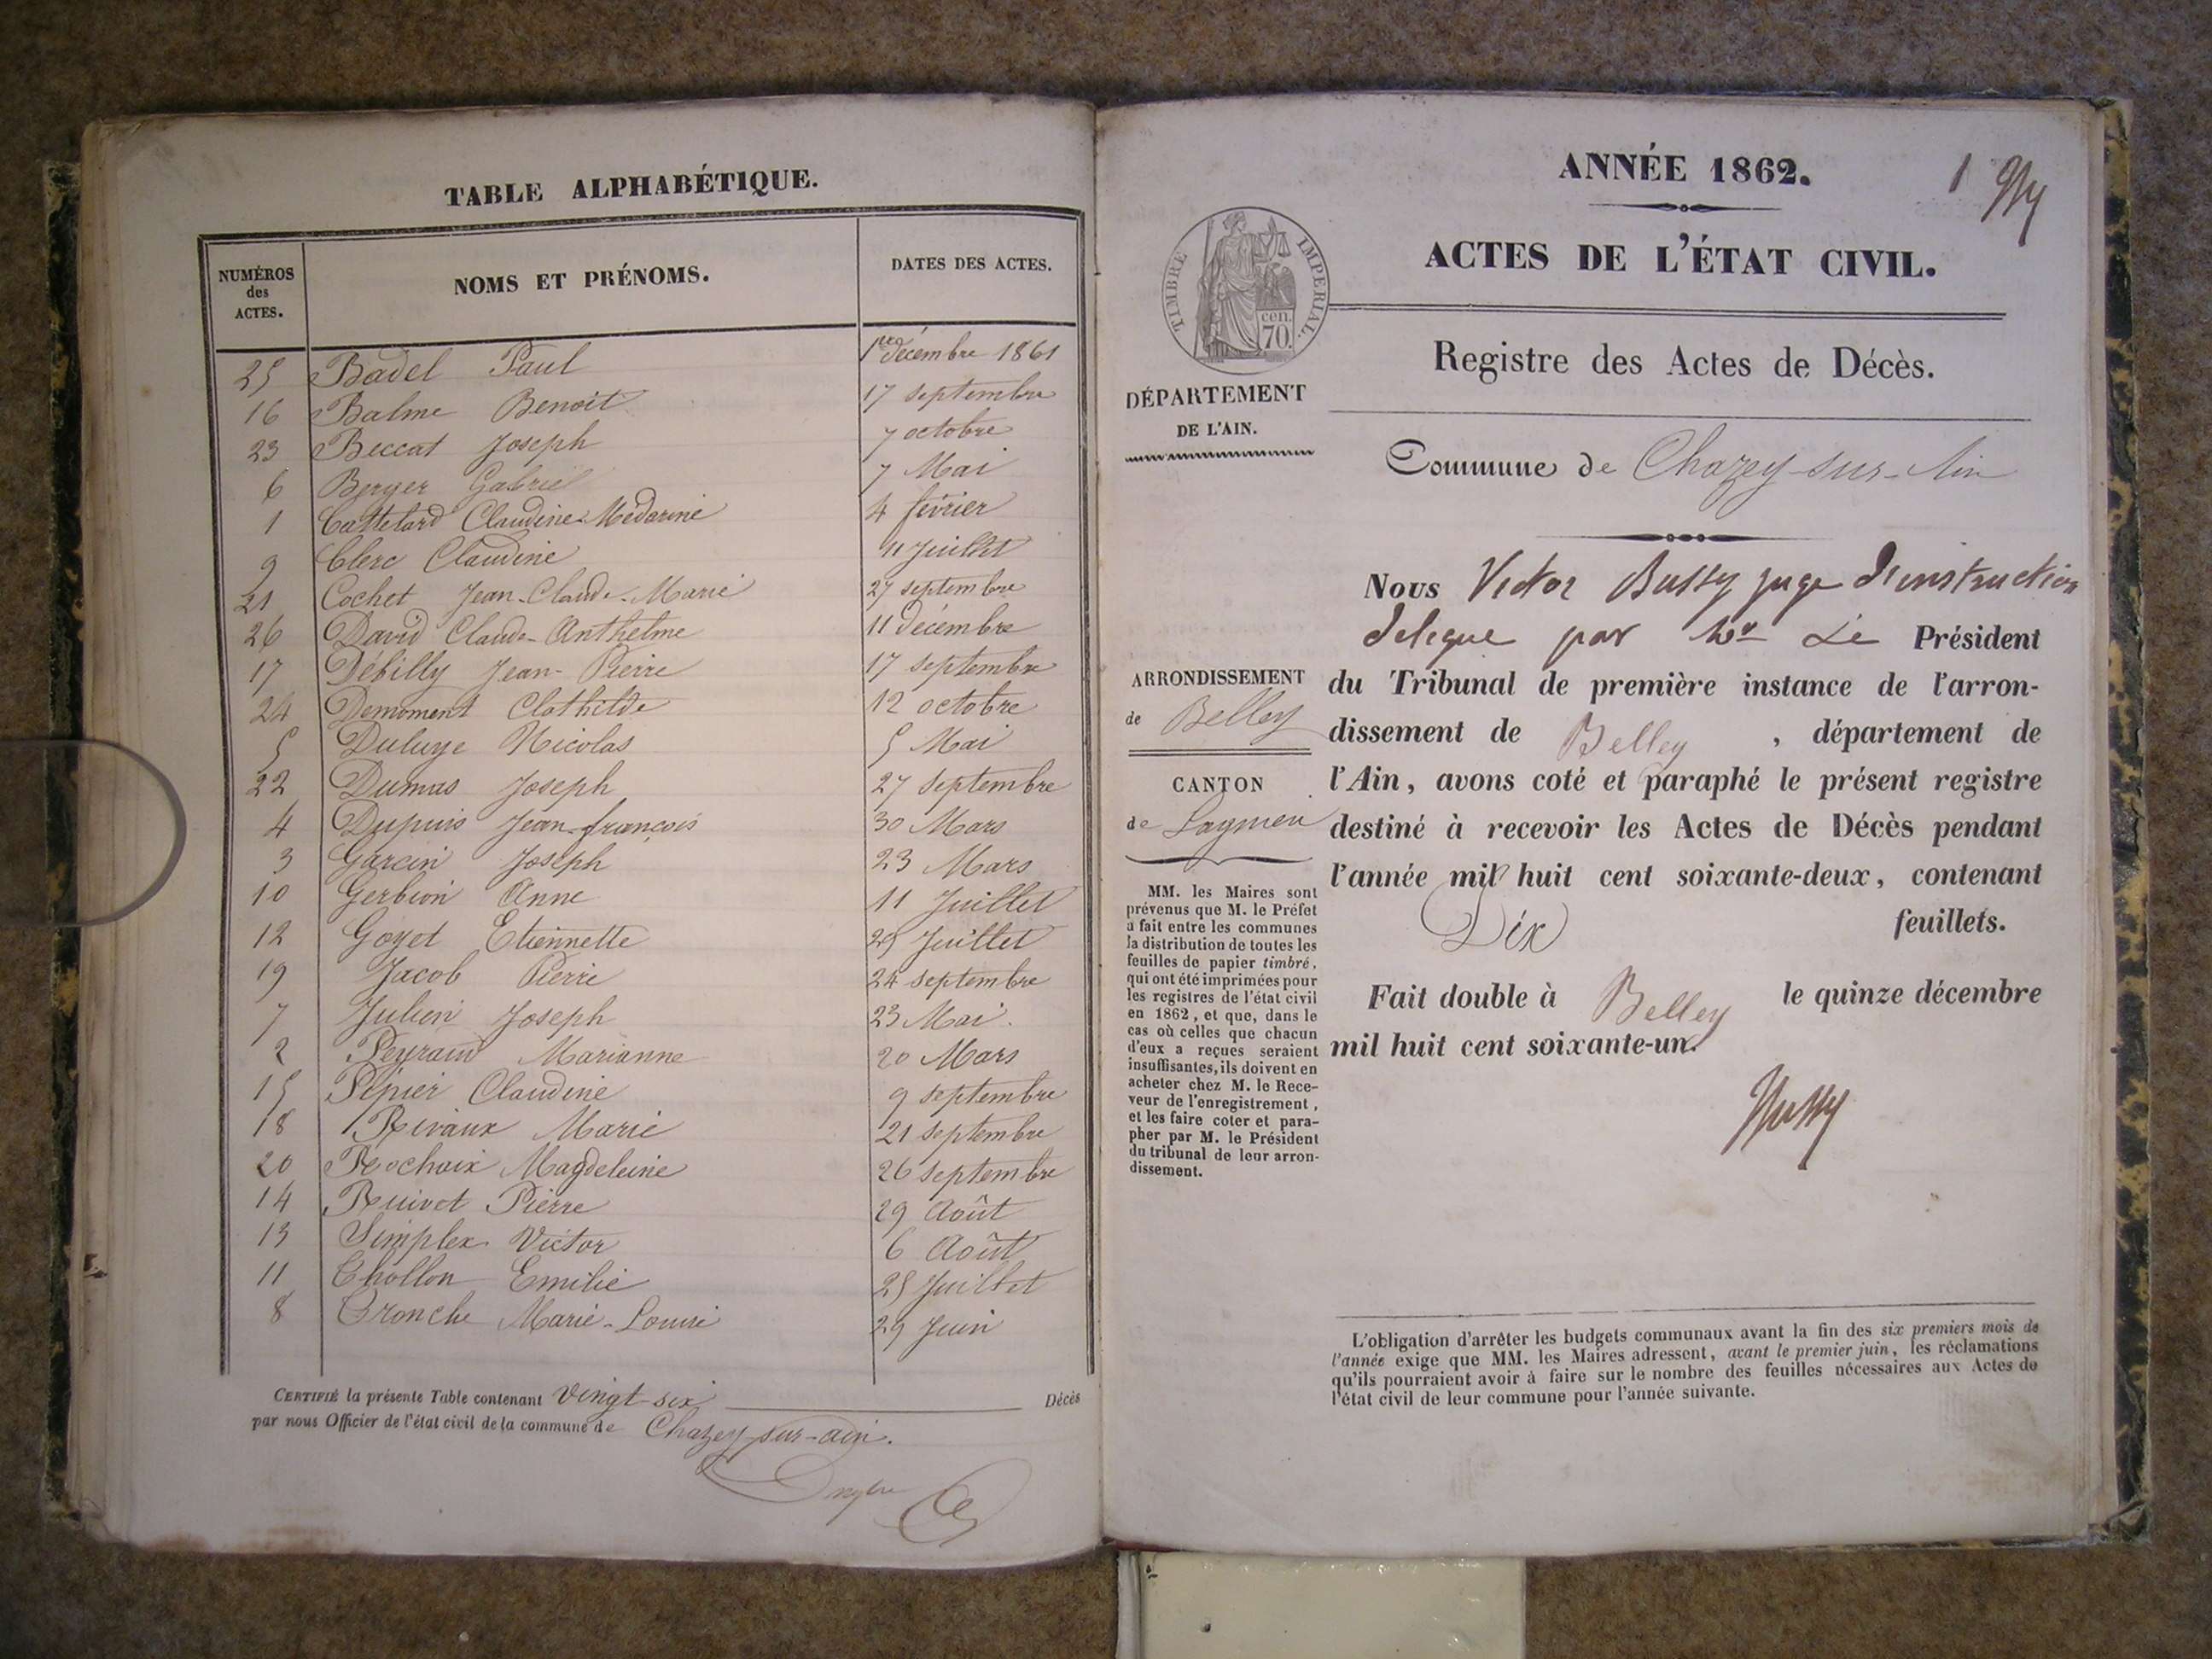 TABLE ALPHABÉTIQUE.
NUMÉROS des ACTES. NOMS ET PRÉNOMS. DATES DES ACTES.
25 Badel Paul 1er décembre 1861
16 Balme Benoit 17 septembre
23 Beccat Joseph 7 octobre
6 Berger Gabriel 7 Mai
1 Cattelard Claudine Médarine 4 février
9 Clerc Claudine 11 Juillet
21 Cochet Jean-Claude-Marie 27 septembre
26 David Claude-Anthelme 11 Décembre
17 Débilly Jean-Pierre 17 septembre
24 Demoment Clothilde 12 octobre
5 Duluye Nicolas 5 Mai
22 Dumas Joseph 27 septembre
4 Dupuis Jean-françois 30 Mars
3 Garcin Joseph 23 Mars
10 Gerbion Anne 11 Juillet
12 Goyet Etiennette 29 Juillet
19 Jacob Pierre 24 septembre
7 Julien Joseph 23 Mai.
2 Peyraud Marianne 20 Mars
15 Pépier Claudine 9 septembre
18 Rivaux Marie 21 septembre
20 Rochaix Magdeleine 26 septembre
14 Ruivet Pierre 29 Août
13 Simplex Victor 6 Août
11 Thollon Emilie 25 Juillet
8 Tronche Marie-Louise 29 Juin
CERTIFIÉ la présente Table contenant vingt-six Décès
par nous Officier de l'état civil de la commune de Chazey-sur-ain.
ANNÉE 1862.
1
ACTES DE L'ÉTAT CIVIL.
TIMBRE IMPERIAL.
cen.
70.
Registre des Actes de Décès.
DÉPARTEMENT
DE L'AIN.
Commune de Chazey-sur-Ain
ARRONDISSEMENT
de Belley
CANTON
de Lagnieu
MM. les Maires sont
prévenus que M. le Préfet
a fait entre les communes
la distribution de toutes les
feuilles de papier timbré,
qui ont été imprimées pour
les registres de l'état civil
en 1862, et que, dans le
cas où celles que chacun
d'eux a reçues seraient
insuffisantes, ils doivent en
acheter chez M. le Rece-
veur de l'enregistrement,
et les faire coter et para-
pher par M. le Président
du tribunal de leur arron-
dissement.
Nous Victor Bussy juge d'instruction
delegue par Mr Le Président
du Tribunal de première instance de l'arron-
dissement de Belley, département de
l'Ain, avons coté et paraphé le présent registre
destiné à recevoir les Actes de Décès pendant
l'année mil huit cent soixante-deux, contenant
Dix feuillets.
Fait double à Belley le quinze décembre
mil huit cent soixante-un.
Bussy
L'obligation d'arrêter les budgets communaux avant la fin des six premiers mois de
l'année exige que MM. les Maires adressent, avant le premier juin, les réclamations
qu'ils pourraient avoir à faire sur le nombre des feuilles nécessaires aux Actes de
l'état civil de leur commune pour l'année suivante.